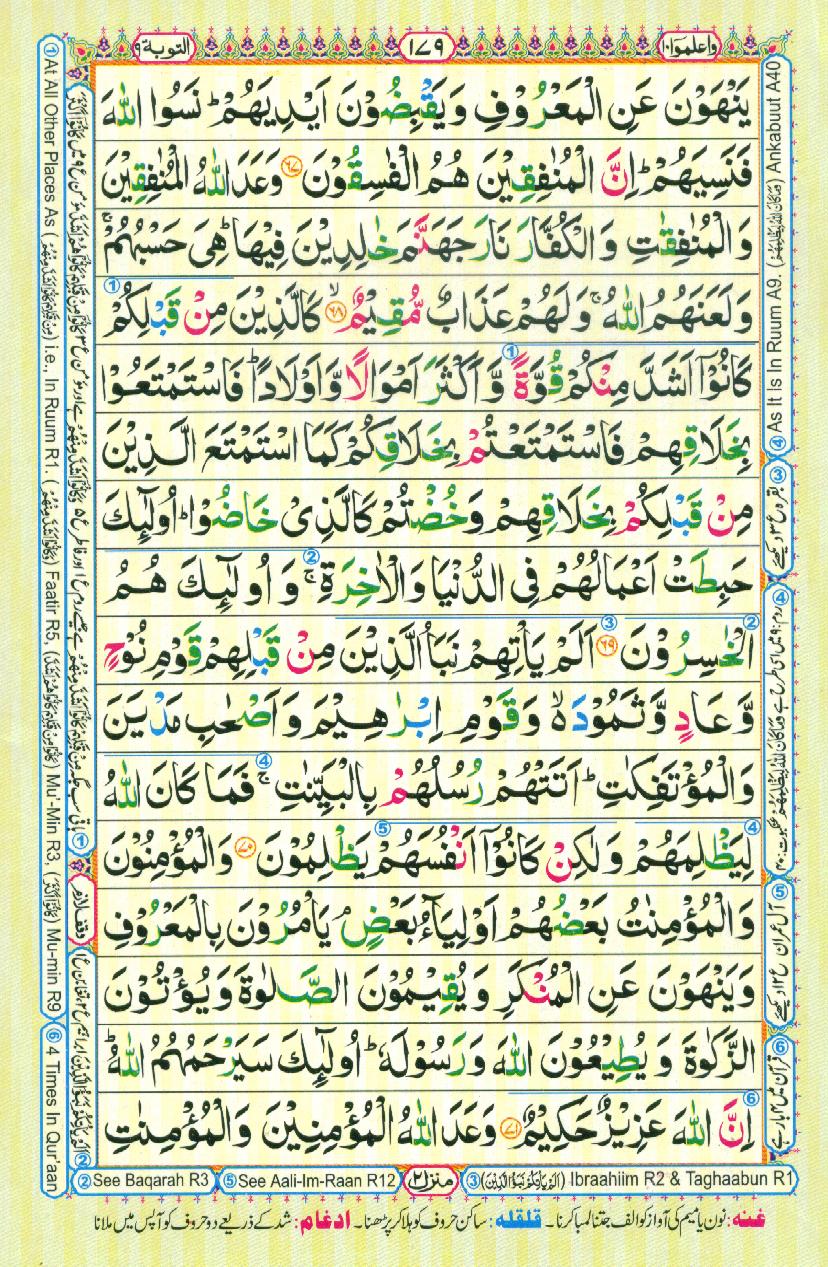 واعلموا۱۰ ۱۷۹ التوبة۹
یَنۡهَوۡنَ عَنِ الۡمَعۡرُوۡفِ وَیَقۡبِضُوۡنَ اَیۡدِیَهُمۡ ؕ نَسُوا اللّٰهَ
فَنَسِیَهُمۡ ؕ اِنَّ الۡمُنٰفِقِیۡنَ هُمُ الۡفٰسِقُوۡنَ ﴿۶۷﴾ وَعَدَ اللّٰهُ الۡمُنٰفِقِیۡنَ
وَالۡمُنٰفِقٰتِ وَالۡكُفَّارَ نَارَ جَهَنَّمَ خٰلِدِیۡنَ فِیۡهَا ؕ هِیَ حَسۡبُهُمۡ ۚ
وَلَعَنَهُمُ اللّٰهُ ۚ وَلَهُمۡ عَذَابٌ مُّقِیۡمٌ ﴿۶۸﴾ كَالَّذِیۡنَ مِنۡ قَبۡلِكُمۡ ①
كَانُوۡۤا اَشَدَّ مِنۡكُمۡ قُوَّةً ① وَّاَكۡثَرَ اَمۡوَالًا وَّاَوۡلَادًا ؕ فَاسۡتَمۡتَعُوۡا
بِخَلَاقِهِمۡ فَاسۡتَمۡتَعۡتُمۡ بِخَلَاقِكُمۡ كَمَا اسۡتَمۡتَعَ الَّذِیۡنَ
مِنۡ قَبۡلِكُمۡ بِخَلَاقِهِمۡ وَخُضۡتُمۡ كَالَّذِیۡ خَاضُوۡا ؕ اُولٰٓئِكَ
حَبِطَتۡ اَعۡمَالُهُمۡ فِی الدُّنۡیَا وَالۡاٰخِرَةِ ۚ ② وَاُولٰٓئِكَ هُمُ
② الۡخٰسِرُوۡنَ ﴿۶۹﴾ ③ اَلَمۡ یَاۡتِهِمۡ نَبَاُ الَّذِیۡنَ مِنۡ قَبۡلِهِمۡ قَوۡمِ نُوۡحٍ
وَّعَادٍ وَّثَمُوۡدَ ۙ وَقَوۡمِ اِبۡرٰهِیۡمَ وَاَصۡحٰبِ مَدۡیَنَ
وَالۡمُؤۡتَفِكٰتِ ؕ اَتَتۡهُمۡ رُسُلُهُمۡ بِالۡبَیِّنٰتِ ۚ ④ فَمَا كَانَ اللّٰهُ
④ لِیَظۡلِمَهُمۡ وَلٰكِنۡ كَانُوۡۤا اَنۡفُسَهُمۡ ⑤ یَظۡلِمُوۡنَ ﴿۷۰﴾ وَالۡمُؤۡمِنُوۡنَ
وَالۡمُؤۡمِنٰتُ بَعۡضُهُمۡ اَوۡلِیَآءُ بَعۡضٍ ۘ یَاۡمُرُوۡنَ بِالۡمَعۡرُوۡفِ
وَیَنۡهَوۡنَ عَنِ الۡمُنۡكَرِ وَیُقِیۡمُوۡنَ الصَّلٰوةَ وَیُؤۡتُوۡنَ
الزَّكٰوةَ وَیُطِیۡعُوۡنَ اللّٰهَ وَرَسُوۡلَهٗ ؕ اُولٰٓئِكَ سَیَرۡحَمُهُمُ اللّٰهُ ؕ
⑥ اِنَّ اللّٰهَ عَزِیۡزٌ حَكِیۡمٌ ﴿۷۱﴾ وَعَدَ اللّٰهُ الۡمُؤۡمِنِیۡنَ وَالۡمُؤۡمِنٰتِ
④ As It Is In Ruum A9. Ankabuut A40
③ بقره ع ۳ دیکھئے
⑤ آل عمران ع ۱۲ دیکھئے
⑥ قرآن میں ۴ بار ہے
① At All Other Places As i.e., In Ruum R1. Faatir R5, Mu'-Min R3, Mu-min R9
⑥ 4 Times In Qur'aan
② See Baqarah R3 ⑤ See Aali-Im-Raan R12 منزل۲ ③ (اَلَمۡ یَاۡتِكُمۡ نَبَؤُا الَّذِیۡنَ) Ibraahiim R2 & Taghaabun R1
غنه: نون یا میم کی آواز کو الف جتنا لمبا کرنا۔ قلقله: ساکن حروف کو ہلا کر پڑھنا۔ ادغام: شد کے ذریعے دو حروف کو آپس میں ملانا